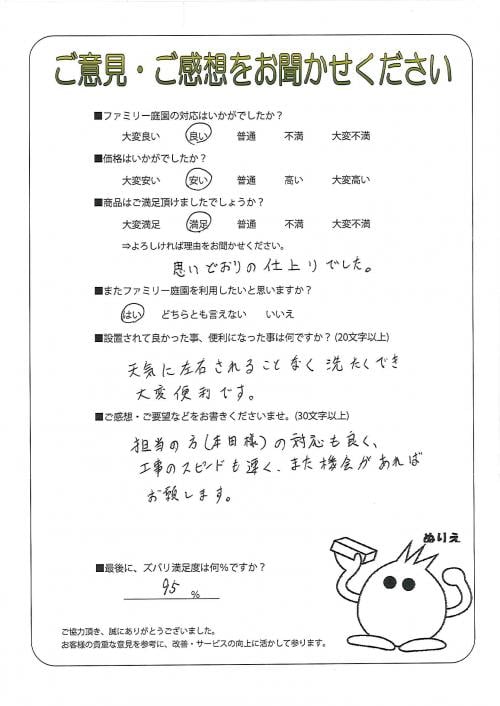 ご意見・ご感想をお聞かせください
■ファミリー庭園の対応はいかがでしたか？
大変良い 良い 普通 不満 大変不満
■価格はいかがでしたか？
大変安い 安い 普通 高い 大変高い
■商品はご満足頂けましたでしょうか？
大変満足 満足 普通 不満 大変不満
⇒よろしければ理由をお聞かせください。
思いどおりの仕上りでした。
■またファミリー庭園を利用したいと思いますか？
はい どちらとも言えない いいえ
■設置されて良かった事、便利になった事は何ですか？(20文字以上)
天気に左右されることなく洗たくでき
大変便利です。
■ご感想・ご要望などをお書きくださいませ。(30文字以上)
担当の方(本田様)の対応も良く、
工事のスピードも速く、また機会があれば
お願します。
ぬりえ
■最後に、ズバリ満足度は何％ですか？
95 ％
ご協力頂き、誠にありがとうございました。
お客様の貴重な意見を参考に、改善・サービスの向上に活かして参ります。